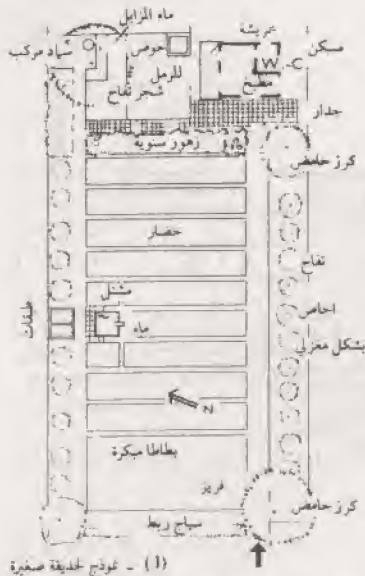 ماء المزابل
سماد مركب
حوض
للرمل
شجر تفاح
عريشة
مسكن
W
C
مطبخ
جدار
زهور سنوية
كرز حامض
خضار
تفاح
مشتل
اجاص
طبقات
ماء
بشكل مغزلي
N
بطاطا مبكرة
فريز
كرز حامض
سياج ربط
(1) ـ نموذج لحديقة صغيرة